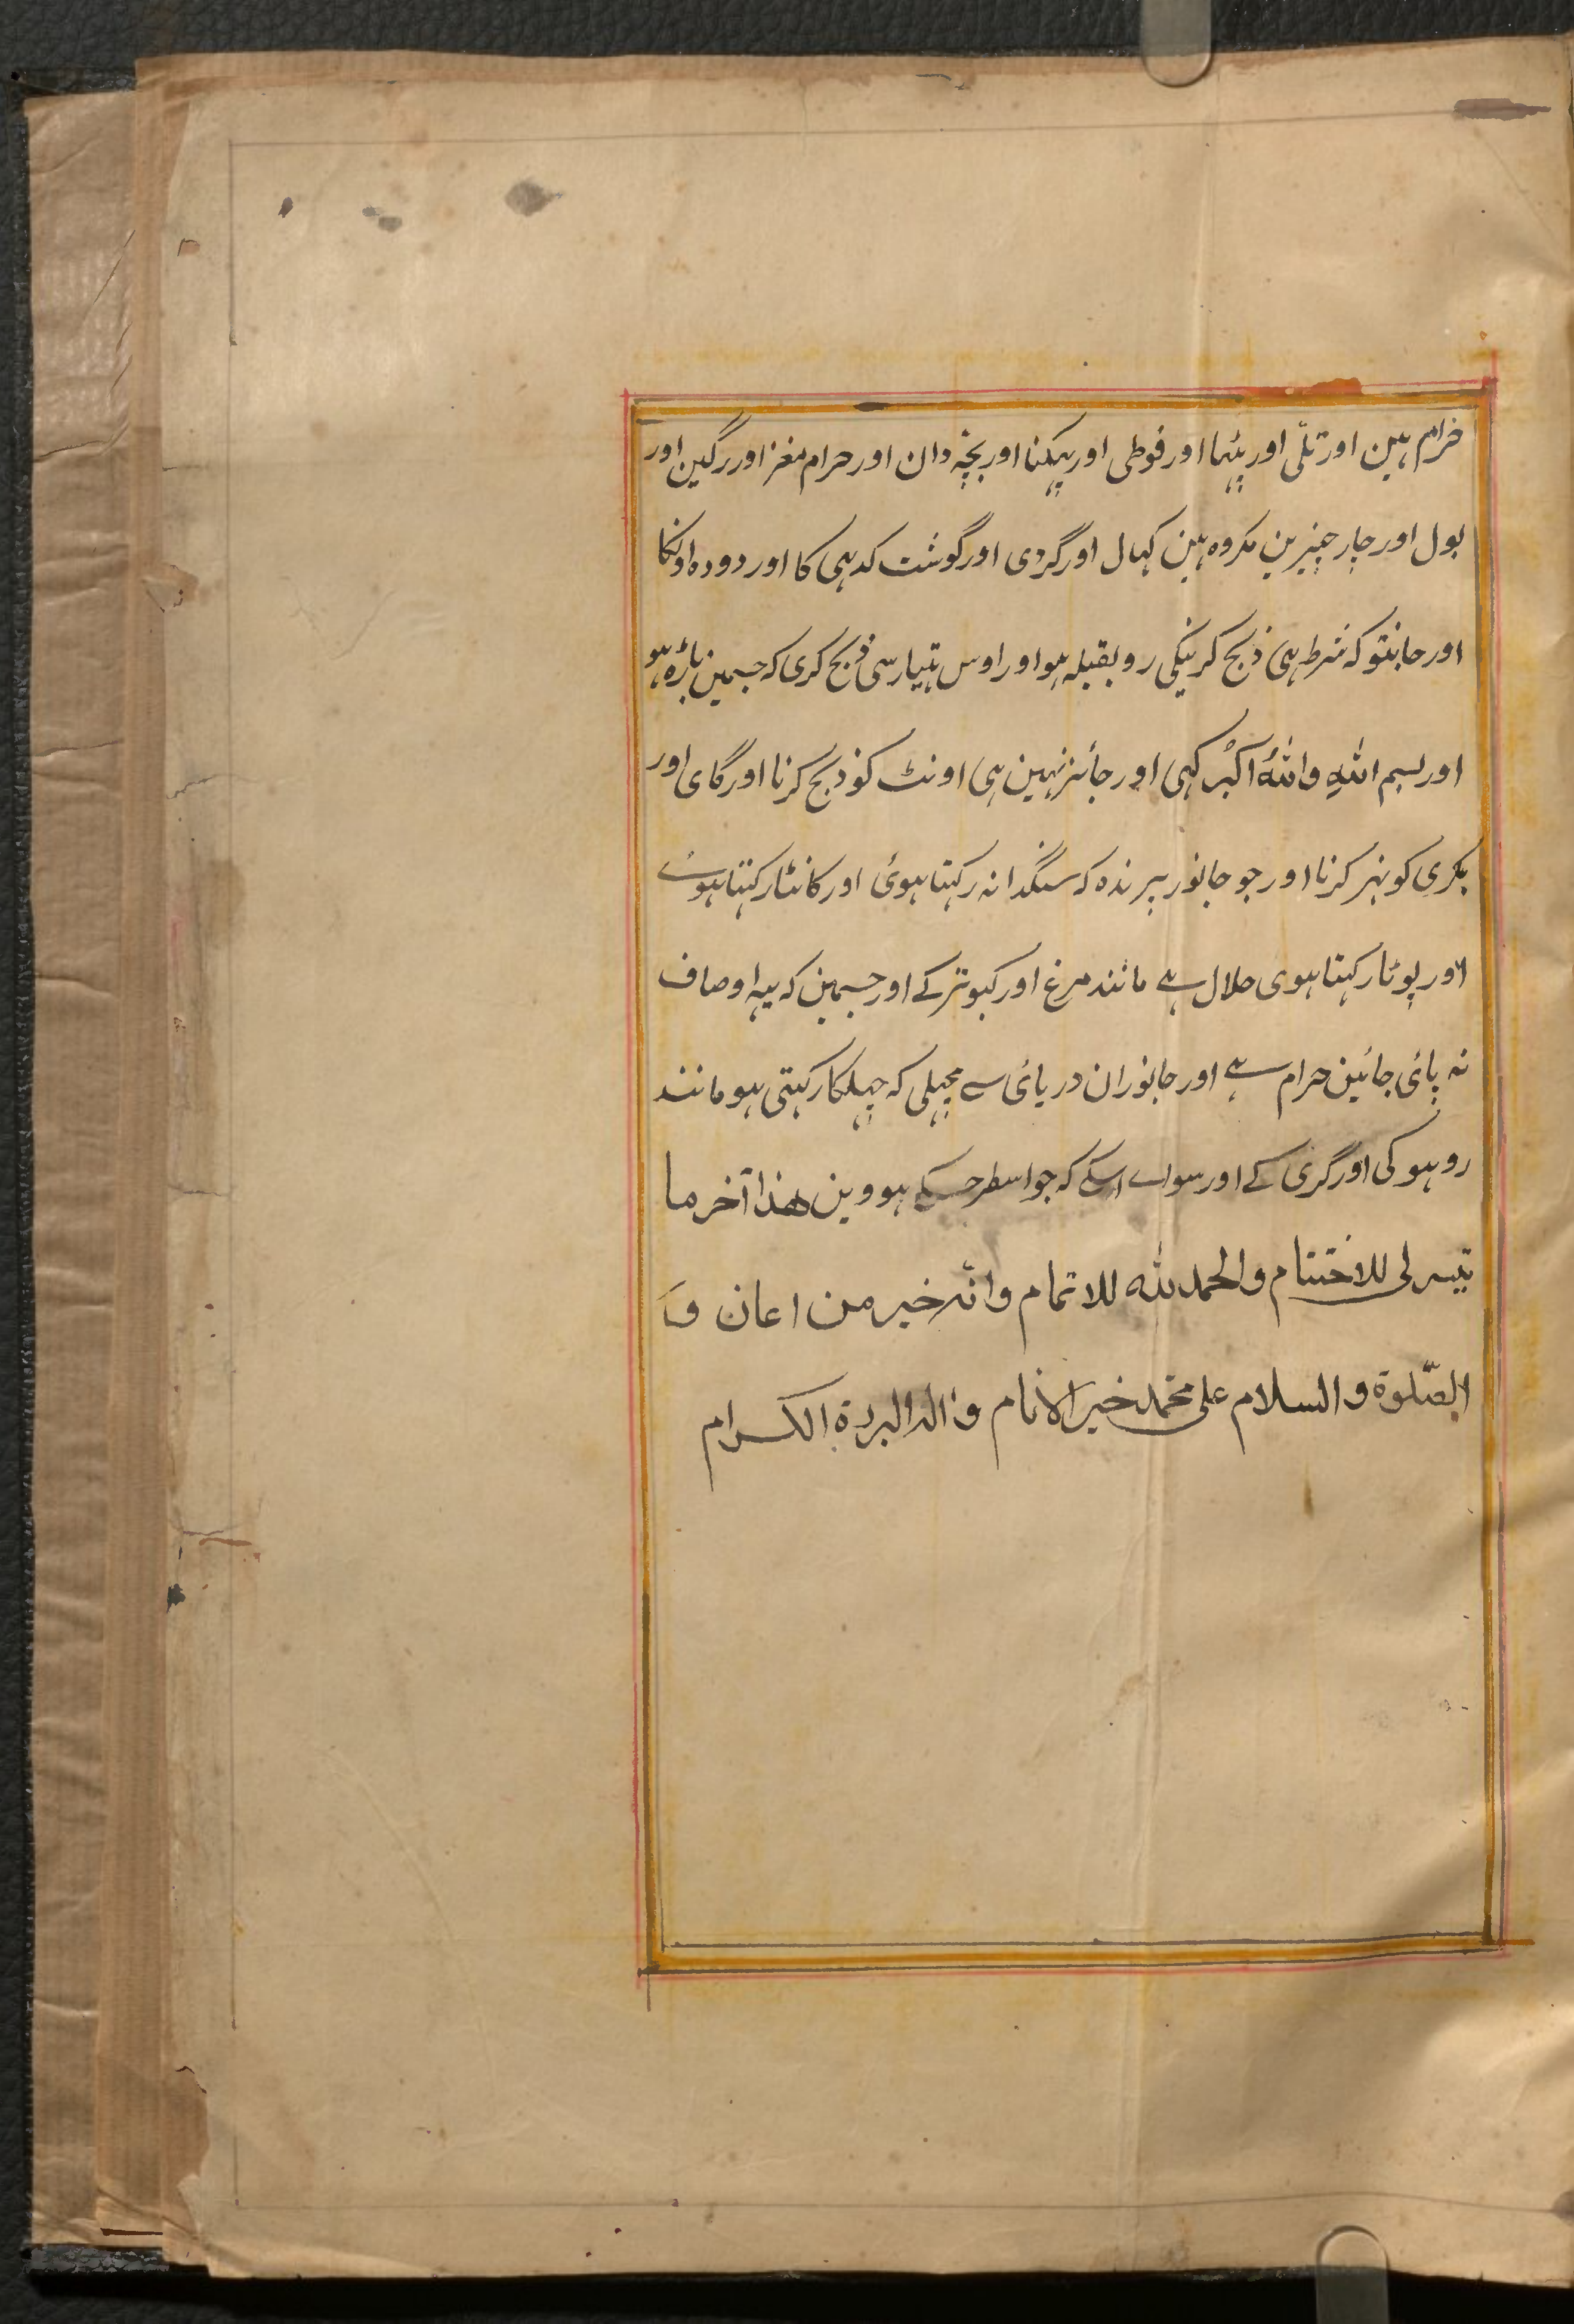 حرام ہین اور تلّی اور پٹہا اور فوطی اور پہکنا اور بچّہ دان اور حرام مغز اور رگین اور
بول اور چار چیزین مکروہ ہین کہال اور گردی اور گوشت کدہی کا اور دودہ اونکا
اور جانتو کہ شرط ہی ذبح کرنیکی رو بقبلہ ہو اور اوس ہتیار سی ذبح کری کہ جسمین باڑہ ہو
اور بسم اللهِ واللهُ اکبْر کہی اور جائز نہین ہی اونٹ کو ذبح کرنا اور گای اور
بکری کو نہر کرنا اور جو جانور پرندہ کہ سنگدانہ رکہتا ہوئی اور کانٹا رکہتا ہوئے
اور پوٹا رکہتا ہوی حلال ہے مانند مرغ اور کبوتر کے اور جسمین کہ یہہ اوصاف
نہ پائی جائین حرام ہے اور جانوران دریائی سے مچہلی کہ چہلکا رکہتی ہو مانند
روہو کی اور گری کے اور سواے اسکے کہ جو اسطرحکے ہووین هذا آخر ما
تیسر لی للاختتام والحمد لله للاتمام وانّه خیر من اعان وَ
الصّلوة والسلام علی محمّد خیر الانام واٰله البررة الکرام